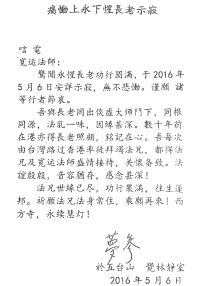 痛慟上永下惺長老示寂
唁電
寬运法师：
驚聞永惺長老功行圓满，于2016年
5月6日安詳示寂，無不悲慟。谨願 諸
等行者節哀。
吾與長老同出倓虚大師門下，同根
同源，法乳一味，因緣甚深。數十年前
在港亦得長老照顧，銘記在心。吾每次
由台灣路过香港率徒拜谒法兄，都得法
兄及寬运法师盛情接待，关懷备致。法
誼殷殷，音容猶存，感念甚深！
法兄世緣已尽，功行累满，往生蓮
邦。祈願法兄法身常住，乘願再來！西
方寺，永续慧灯！
夢参
於五台山 覺林静室
2016年5月6日